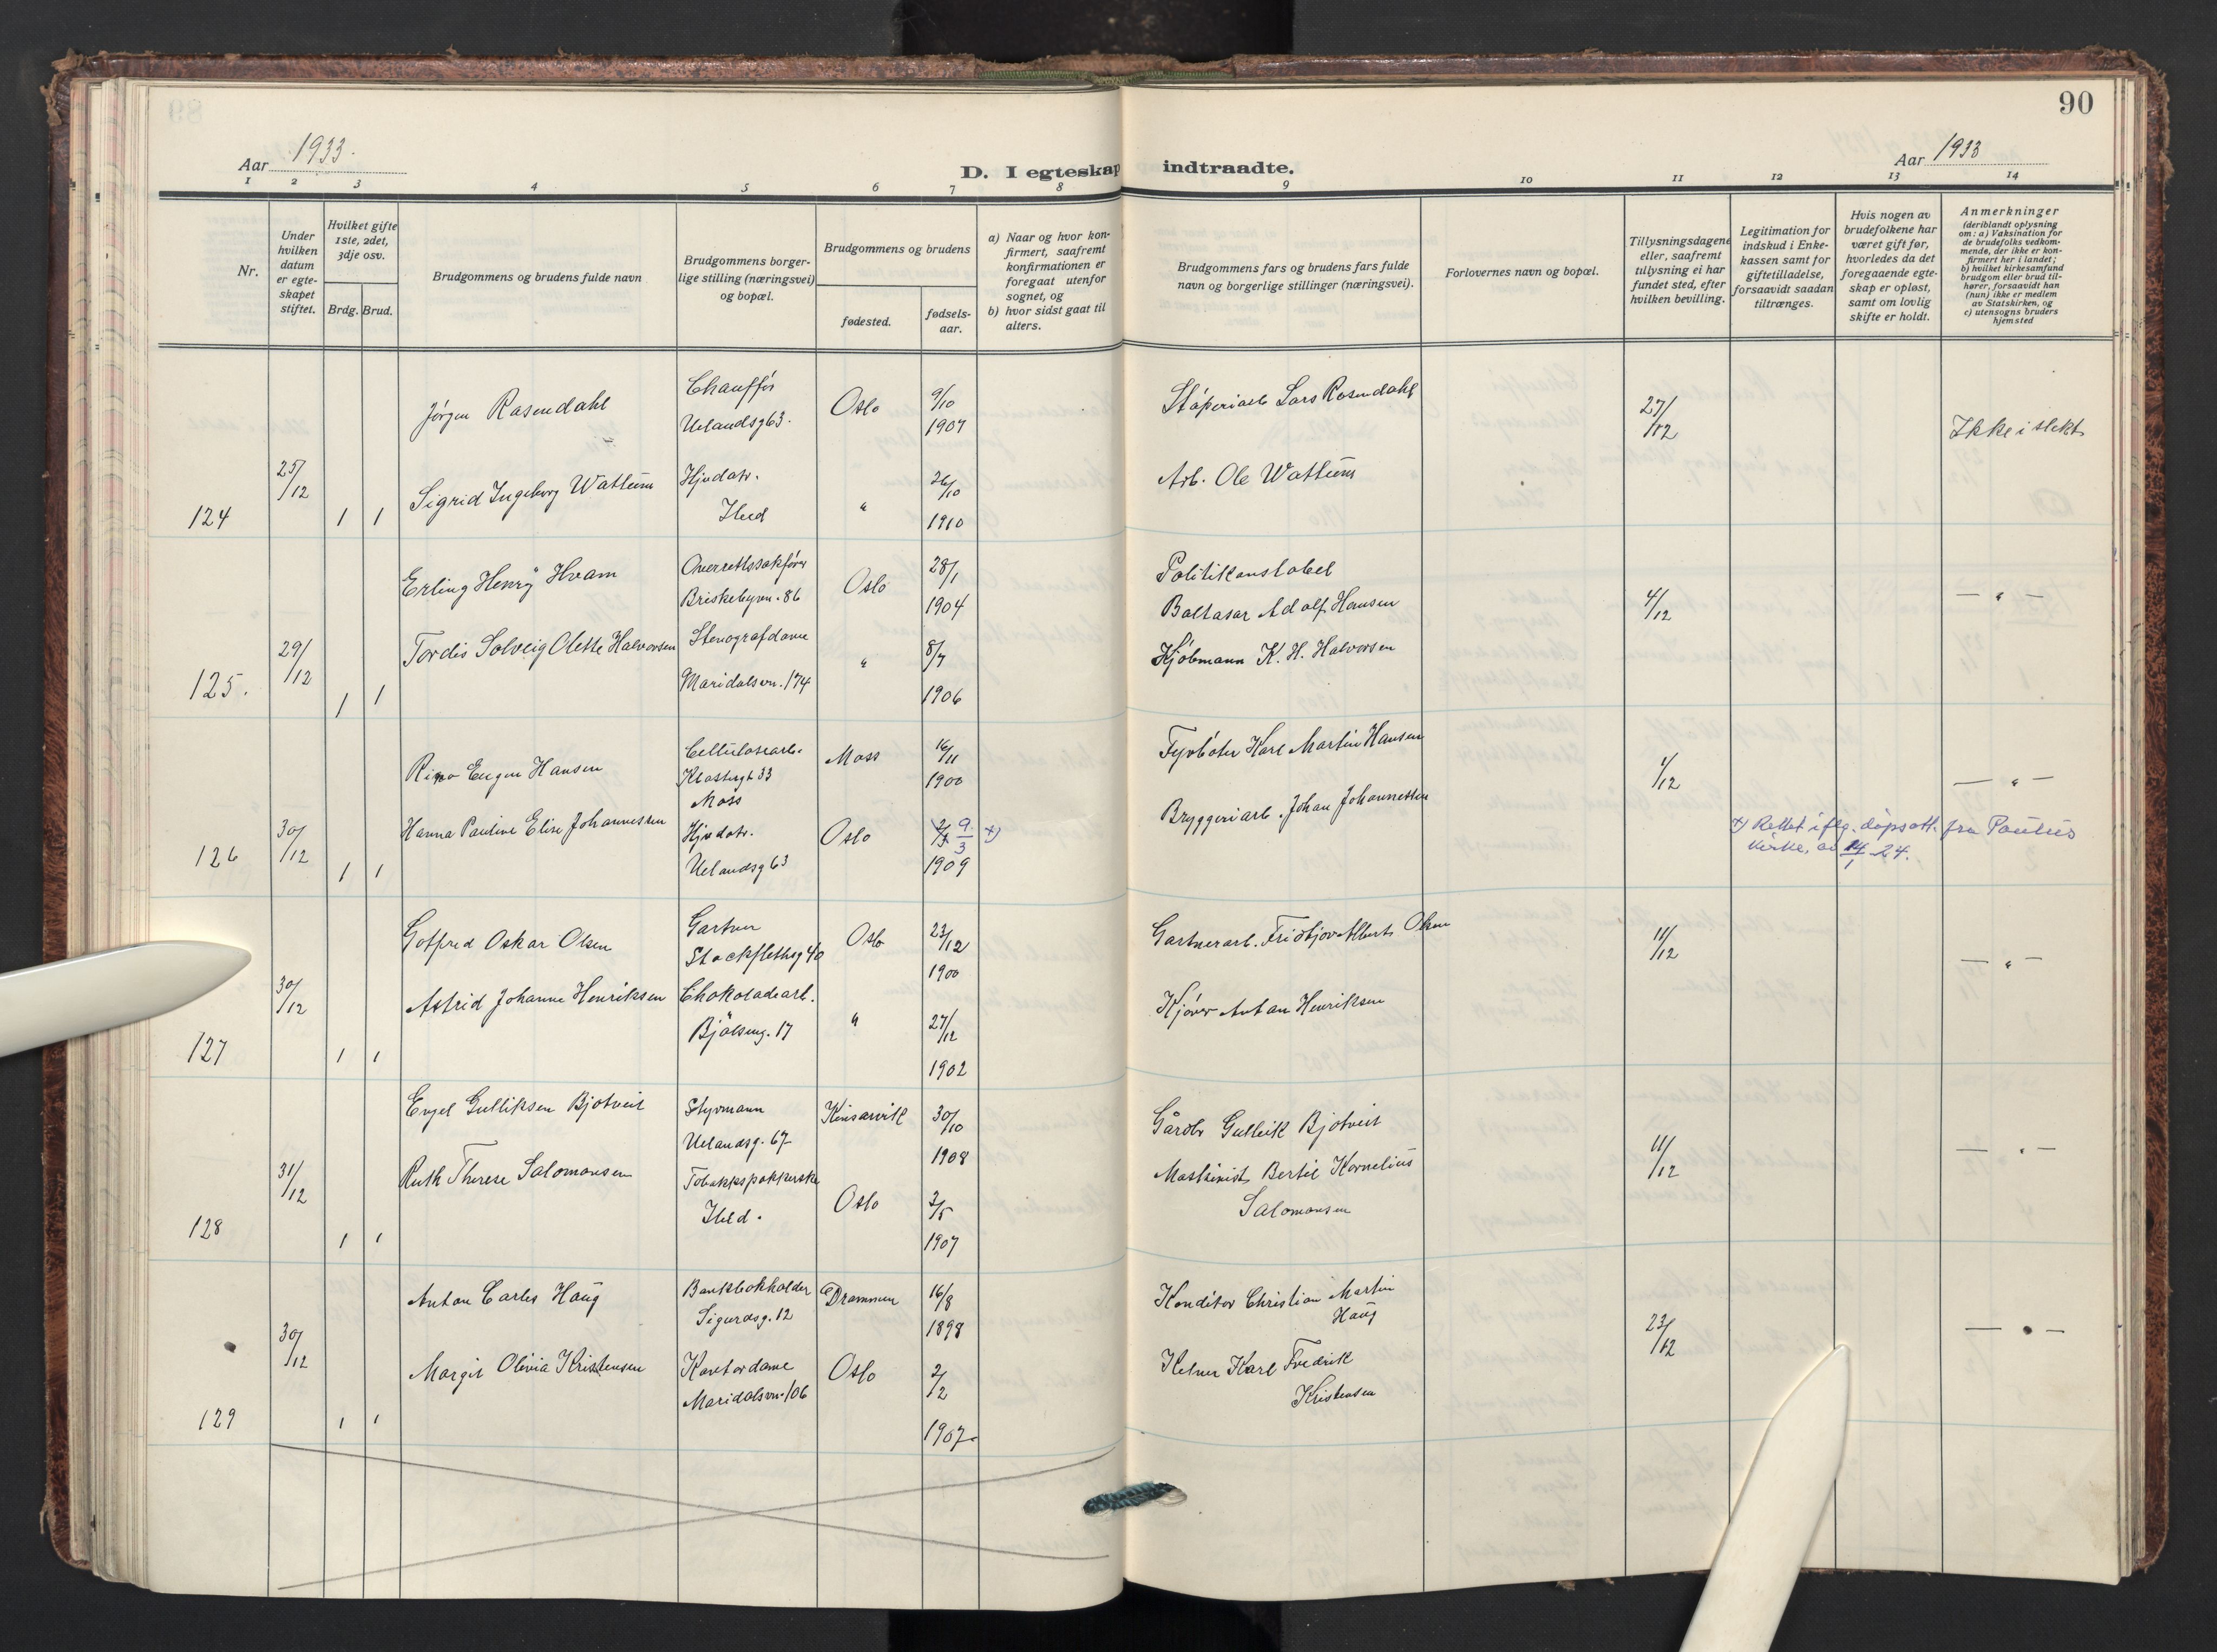 90
Aar 1933.
D. I egteskap indtraadte.
Aar 1933
1 2 3 4 5 6 7 8 9 10 11 12 13 14
Nr.
Under hvilken datum er egteskapet stiftet.
Hvilket gifte 1ste, 2det, 3dje osv.
Brdg. Brud.
Brudgommens og brudens fulde navn
Brudgommens borgerlige stilling (næringsvei) og bopæl.
Brudgommens og brudens
fødested.
fødselsaar.
a) Naar og hvor konfirmert, saafremt konfirmationen er foregaat utenfor sognet, og
b) hvor sidst gaat til alters.
Brudgommens fars og brudens fars fulde navn og borgerlige stillinger (næringsvei).
Forlovernes navn og bopæl.
Tillysningsdagene eller, saafremt tillysning ei har fundet sted, efter hvilken bevilling.
Legitimation for indskud i Enkekassen samt for giftetilladelse, forsaavidt saadan tiltrænges.
Hvis nogen av brudefolkene har været gift før, hvorledes da det foregaaende egteskap er opløst, samt om lovlig skifte er holdt.
Anmerkninger (deriblandt oplysning om: a) Vaksination for de brudefolks vedkommende, der ikke er konfirmert her i landet; b) hvilket kirkesamfund brudgom eller brud tilhører, forsaavidt han (hun) ikke er medlem av Statskirken, og c) utensogns bruders hjemsted
124 25/12 1 1
Jørgen Rosendahl
Chauffør
Uelandsg 63.
Oslo 9/10 1907
Støperiarb Lars Rosendahl
27/12
Ikke i slekt
Sigrid Ingeborg Wattum
Hjv datr.
Ibid
" 26/10 1910
Arb. Ole Wattum
125. 29/12 1 1
Erling Henry Hvam
Overrettssakfører
Briskebyvn. 86
Oslo 28/1 1904
Politikonstabel
Baltasar Adolf Hansen
4/12
— " —
Tordis Solveig Olette Halvorsen
Stenografdame
Maridalsvn. 174
" 8/7 1906
Kjøbmann K. H. Halvorsen
126 30/12 1 1
Rino Eugen Hansen
Cellulosearb.
Klostergt 33
Moss
Moss 16/11 1900
Fyrbøter Karl Martin Hansen
1/12
— " —
Hanna Pauline Elise Johannessen
Hjv datr.
Uelandsg 63
Oslo 9/3 x) 1909
Bryggeriarb. Johan Johannessen
x) Rettet iflg. dåpsatt. fra Paulus
kirke, av 14/1 24.
127 30/12 1 1
Gotfred Oskar Olsen
Gartner
Stockflethsg 40
Oslo 23/12 1900
Gartnerarb. Fridtjov Albert Olsen
11/12
— " —
Astrid Johanne Henriksen
Chokoladearb.
Bjølseng. 17
" 27/12 1902
Kjører Anton Henriksen
128 31/12 1 1
Engel Gulliksen Bjotveit
Styrmann
Uelandsg. 67
Kinsarvik 30/10 1908
Gårdbr Gulleik Bjotveit
11/12
— " —
Ruth Therese Salomonsen
Tobakkspakkerske
Ibid.
Oslo 3/5 1907
Maskinist Bertil Kornelius
Salomonsen
129 30/12 1 1
Anton Carles Haug
Bankbokholder
Sigurdsg. 12
Drammen 16/8 1898
Konditor Christian Martin
Haug
23/12
— " —
Margit Olivia Kristensen
Kontordame
Maridalsvn. 106
Oslo 2/2 1907.
Kelner Karl Fredrik
Kristensen